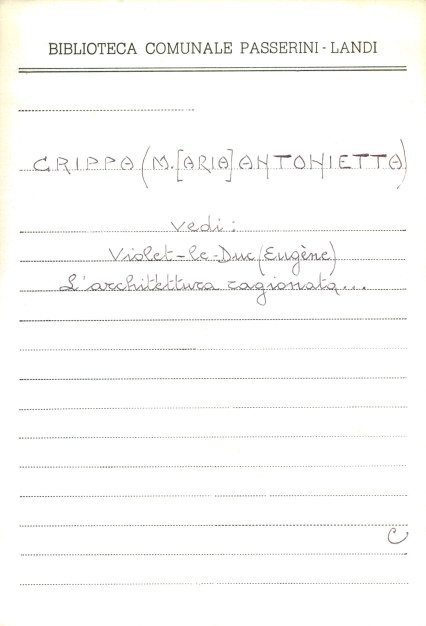 BIBLIOTECA COMUNALE PASSERINI - LANDI
CRIPPA (M.[ARIA] ANTONIETTA)
vedi:
Violet-le-Duc (Eugène)
L'architettura ragionata...
C